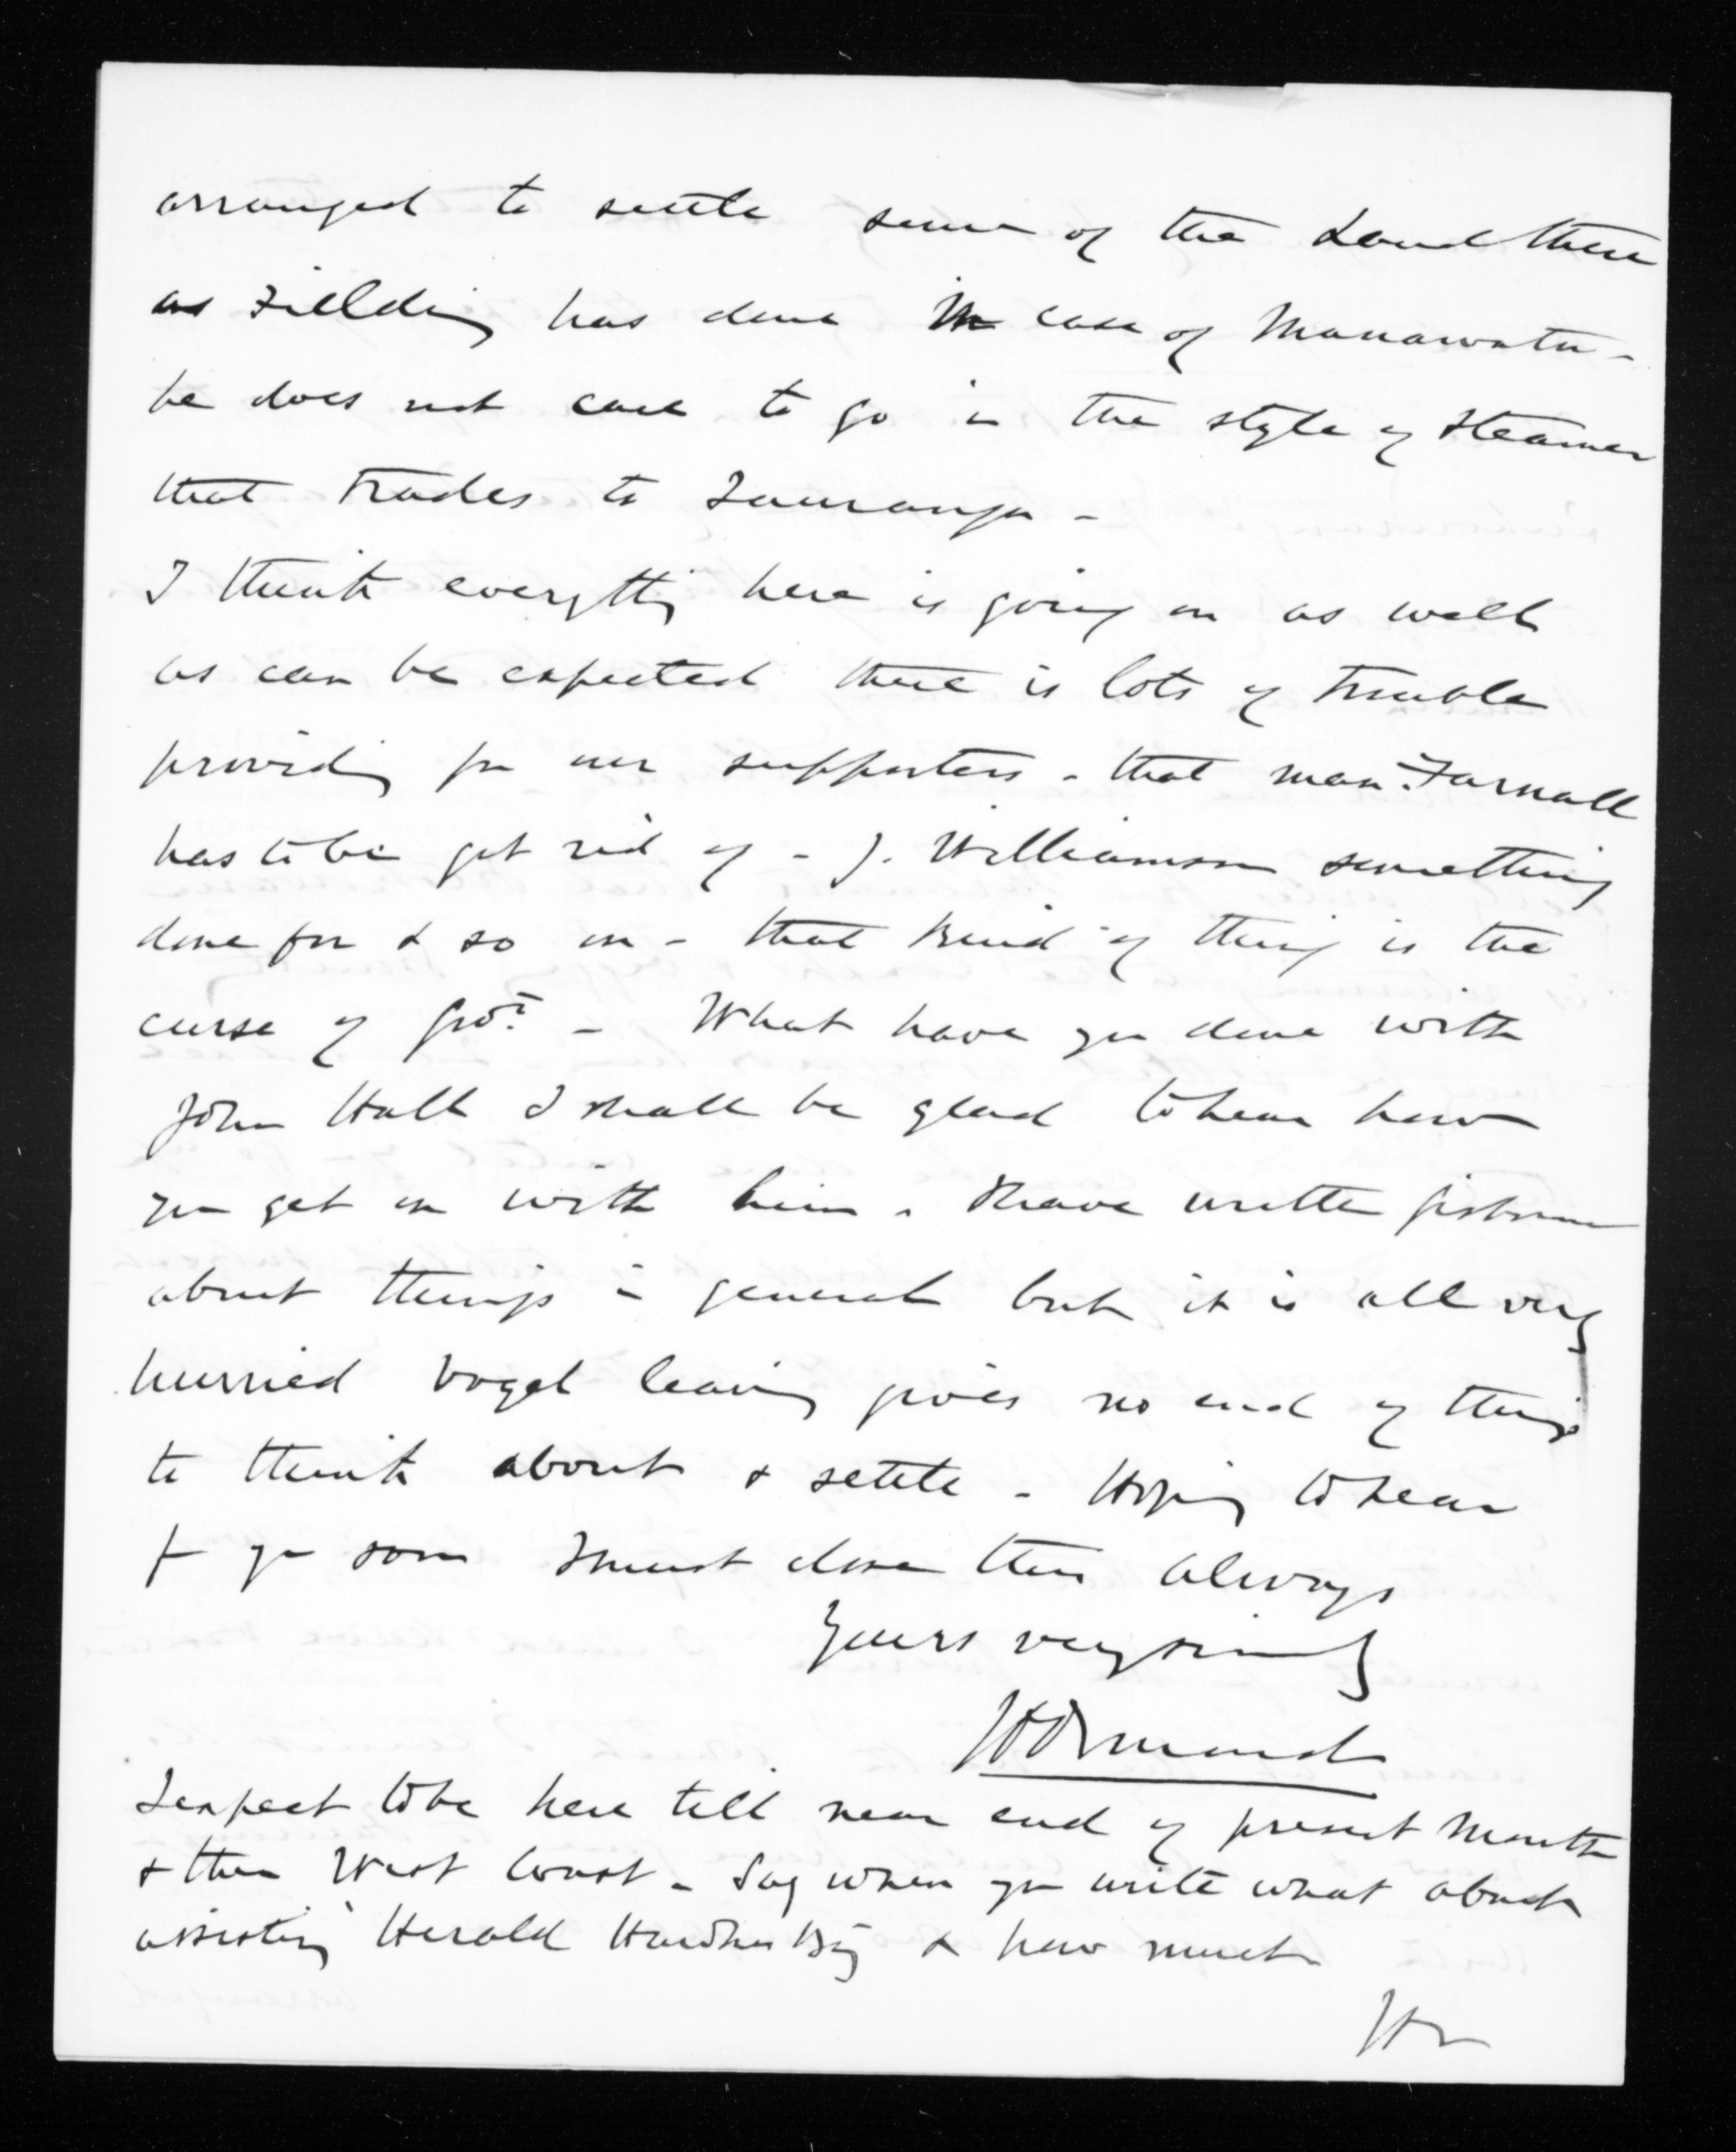 arranged to settle some of the Land there
as Feilding has done in case of Manawatu -
he does not care to go in the style of Steamer
that trades to Tauranga -
I think everything here is going on as well
as can be expected there is lots of trouble
providing for our supporters - that man Farnall
has to be got rid of - J. Williamson something
done for & so on - that kind of thing is the
curse of Govt. - What have you done with
John Hall I shall be glad to hear how
you get on with him - I have written Gisborne
about things in general but it is all very
hurried Vogel leaving gives no end of things
to think about & settle - Hoping to hear
fr you soon I must close this always
Yours very sincerely
JD Ormond
I expect to be here till near end of present Month
& then West Coast - Say when you write what about
assisting Herald Hawkes Bay & how much